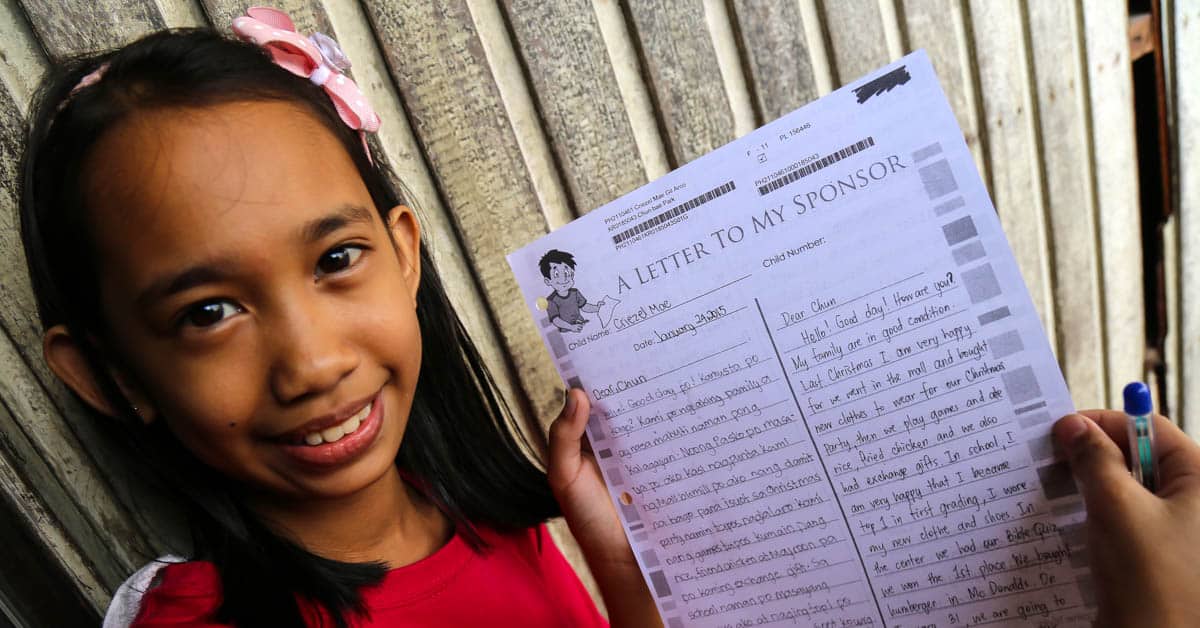 F - 11 PL 156446
PH2110461 Criezel Mae Gil Arco
KR0185043 Chun bae Park
PH2110461KR0185043S01G
PH2110461000185043
A LETTER TO MY SPONSOR
Child Name: Criezel Mae
Child Number:
Date: January 24, 2015
Dear, Chun
Good day po! Kamusta po
Kami po ng aking pamilya
ay nasa mabuti naman pong
kalagayan. Noong Pasko po masa-
ya po ako kasi nagpunta kami
ng Mall bumili po ako nang damit
na bago para isuot sa Christmas
party namin tapos naglalaro kami
nang games tapos kumain pang
rice, fried chicken at Mayroon pa
po kaming exchange gift. Sa
school naman po masayang
ako at naging top 1 po
Dear Chun
Hello! Good day! How are you?
My family are in good condition.
Last Christmas I am very happy
for we went in the mall and bought
new clothes to wear for our Christmas
Party, then we play games and ate
rice, fried chicken and we also
had exchange gifts. In school, I
am very happy that I became
top 1 in first grading, I wore
my new clothe and shoes. In
the center we had our Bible Quiz,
we won the 1st place. We bought
humberger in Mc Donalds. On
31, we are going to